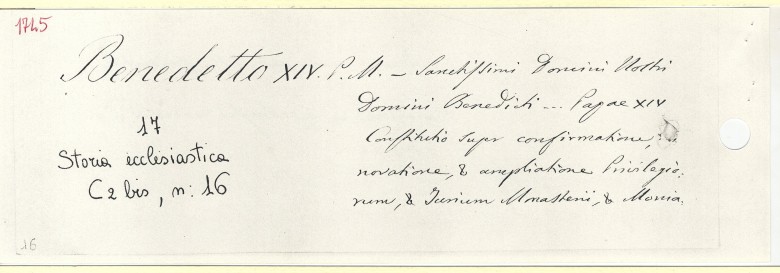 1745
Benedetto XIV. P. M. – Sanctissimi Domini Nostri
Domini Benedicti ... Papae XIV
Constitutio super confirmatione,
novatione, & ampliatione Privilegio:
rum, & Jurium Monasterii, & Monia.
17
Storia ecclesiastica
C2 bis, n: 16
16